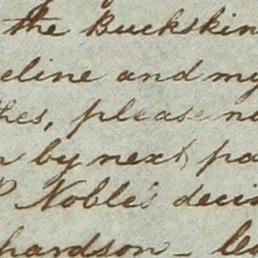 the Buckskin
eline and my
hes, please no
by next pa
P Noble's deci
hardson - le